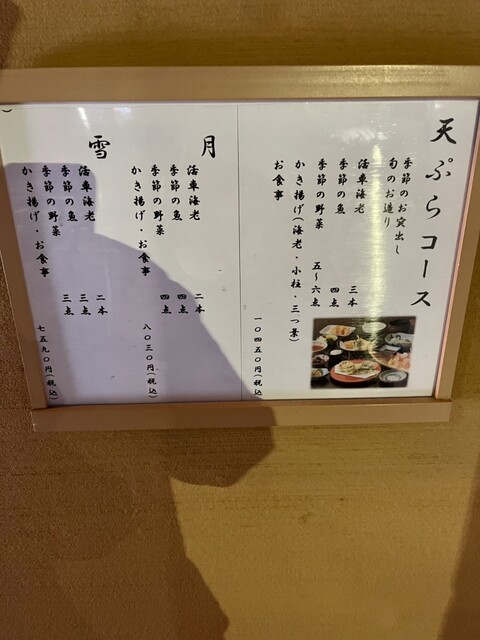 天ぷらコース
季節のお突出し
旬のお造り
活車海老 三本
季節の魚 四点
季節の野菜 五〜六点
かき揚げ(海老・小柱・三つ葉)
お食事
一〇四五〇円(税込)
月
活車海老 二本
季節の魚 四点
季節の野菜 四点
かき揚げ・お食事
八〇三〇円(税込)
雪
活車海老 二本
季節の魚 三点
季節の野菜 三点
かき揚げ・お食事
七五九〇円(税込)